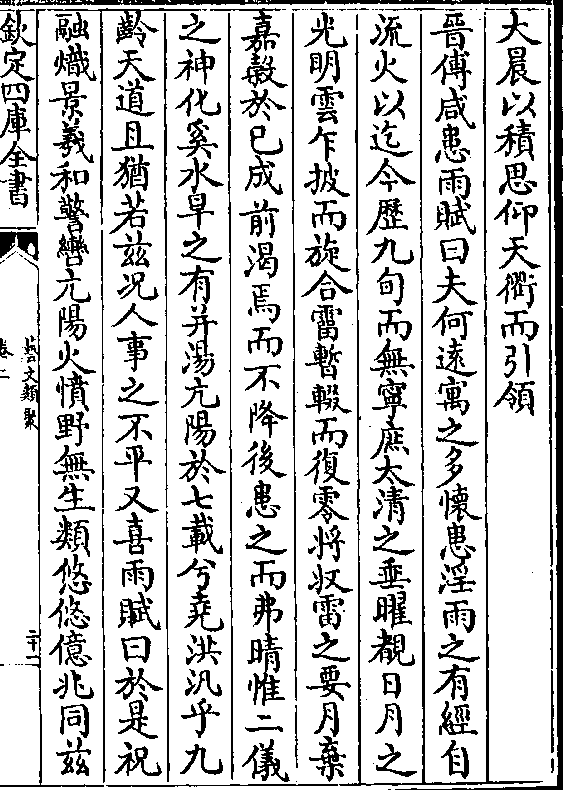 大晨以積思仰天衢而引領
晉傅咸患雨賦曰夫何遠寓之多懷患淫雨之有經自
流火以迄今歷九旬而無寧庶太清之垂曜覩日月之
光明雲乍披而旋合霤暫輟而復零將收雷之要月棄
嘉穀於已成前渴焉而不降後患之而弗晴惟二儀
之神化奚水旱之有并湯亢陽於七載兮堯洪汎乎九
齡天道且猶若茲况人事之不平又喜雨賦曰於是祝
融熾景羲和警轡亢陽火憤野無生類悠悠億兆同茲
欽定四庫全書
藝文類聚
卷二
二十二